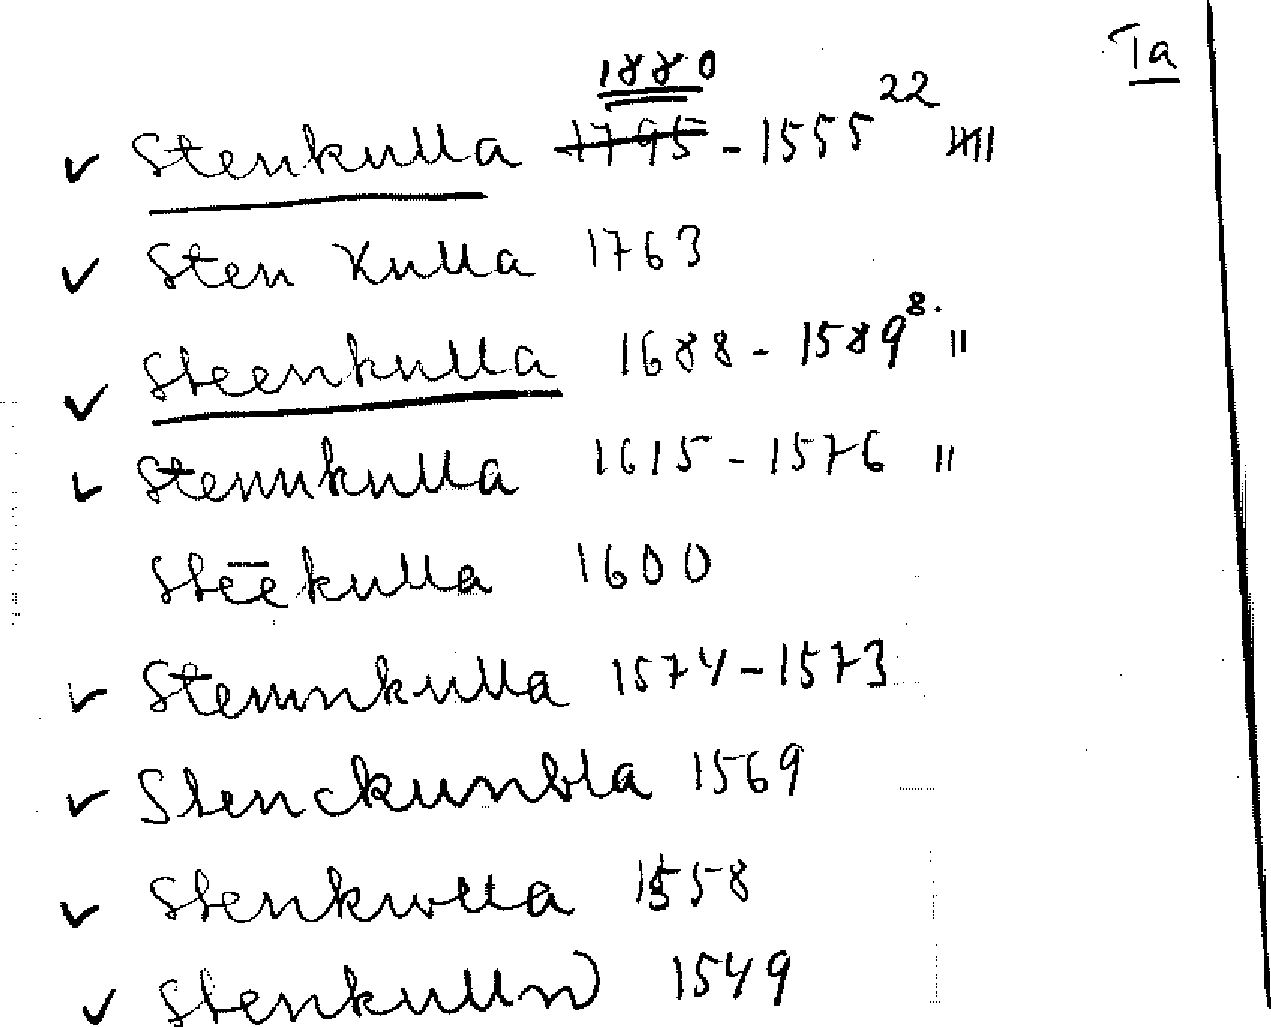 Ta
1880
✓ Stenkulla 1795 - 1555 22 𝍸
✓ Sten Kulla 1763
✓ Steenkulla 1688 - 1589 8. ||
✓ Stennkulla 1615 - 1576 ||
Stēēkulla 1600
✓ Stennkulla 1574 - 1573
✓ 1569
✓ Stenkwlla 1558
✓ 1549